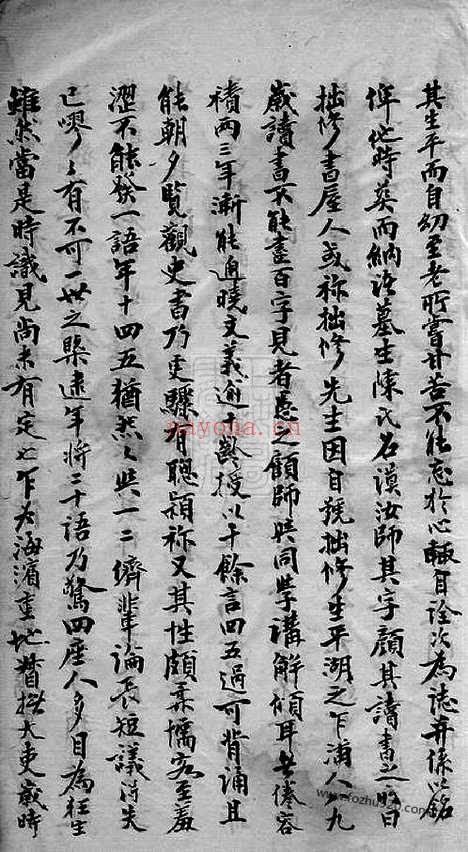 其生平而自幼至老所嘗甘苦不能忘於心輒自詮次為誌并係以銘
俾他時葬而納諸墓生陳氏名謨汝師其字顧其讀書之
拙修書屋人或称拙修先生因自號拙修生平湖之乍浦人少九
歲讀書不能盡百字見者患之顧師與同學講解傾耳無倦容
積兩三年漸能通曉文義逾十齡授以千餘言四五過可背誦且
能朝夕覽觀史書乃更驟有聰穎称又其性頗柔懦客至羞
澀不能發一語年十四五猶然與一二儕輩論長短議得失
已嘐々有不可一世之槩逮年將二十語乃驚四座人多目為狂生
雖然當是時識見尚未有定也乍為海濱重地督撫大吏歲時
nayona.com
www.fozhu920.com